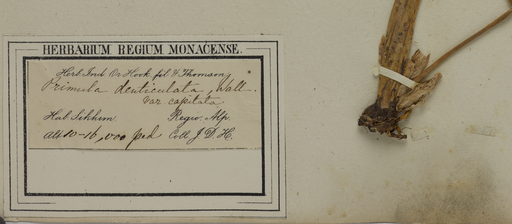 HERBARIUM REGIUM MONACENSE.
Herb. Ind. Or. Hook. fil. & Thomson.
Primula denticulata, Wall.
var capitata
Hab. Sikkim. Regio. Alp.
Alt. 10-16,000 ped Coll. J. D. H.